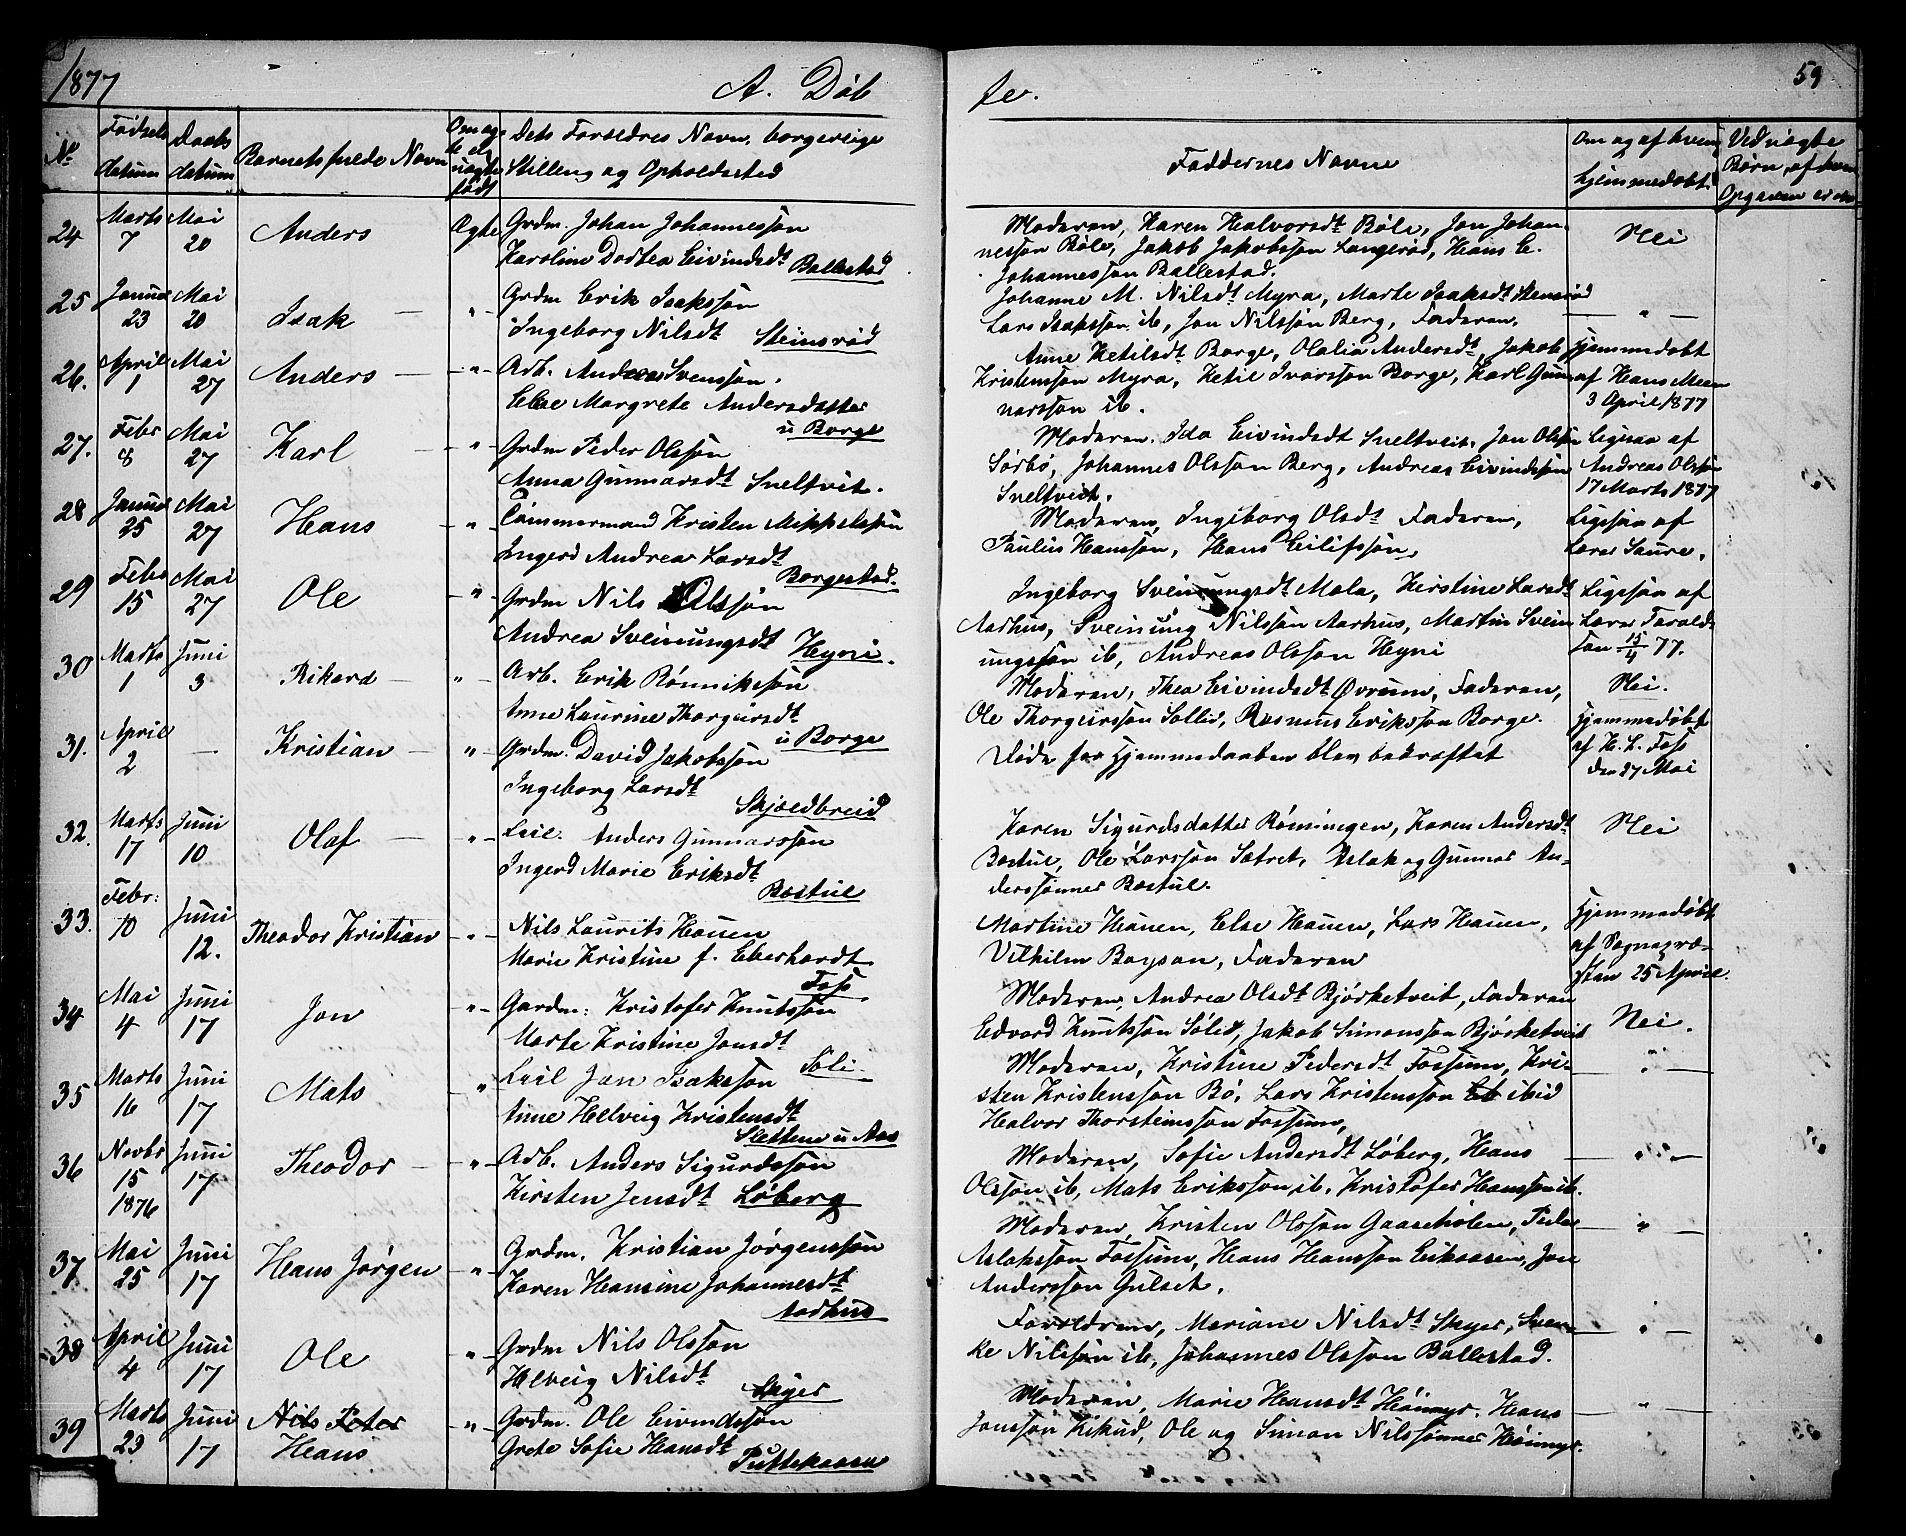 1877
A. Døb
te.
59
No
Fødsels datum
Daabs datum
Barnets fulde Navn
Om ægte el. uægte født
Dets Forældres Navn, borgerlige
Stilling og Opholdssted
Faddernes Navne
Om og af hvem hjemmedøbt
Ved uægte Børn, af hvem Opgaven er
24 Marts 7 Mai 20 Anders Ægte Grdm. Johan Johannessøn
Karoline Dortea Eivindsdt Ballestad
Moderen, Karen Halvorsdt Bøle, Jon Johan-
nessøn Bøle, Jakob Jakobssøn Langerød, Hans E.
Johannessøn Ballestad.
Nei
25 Januar 23 Mai 20 Isak — " Grdm Erik Isakssøn
Ingeborg Nilsdt Steinsrød
Johanne M. Nilsdt Myra, Marte Isaksdt Stensrød
Lars Isakssøn ib, Jon Nilssøn Berg, Faderen.
— " —
26. April 1 Mai 27 Anders — " Arb. Anders Svenssøn.
Else Margrete Andersdatter
u Borge
Anne Ketilsdt Borge, Olalia Andersdt, Jakob
Kristenssøn Myra, Ketil Ivarssøn Borge, Karl Gun-
narssøn ib.
Hjemmedøbt
af Hans Meen
3 April 1877
27. Febr 8 Mai 27 Karl — " Grdm Peder Olssøn
Anna Gunnarsdt Sneltvit.
Moderen. Ida Eivindsdt Sneltveit, Jon Olssøn
Sørbø, Johannes Olssøn Berg, Andreas Eivindssøn
Sneltveit.
Ligesaa af
Andreas Olssøn
17 Marts 1877
28 Januar 25 Mai 27 Hans — " Tømmermand Kristen Mikkelssøn
Ingerd Andrea Larsdt
Borgestad.
Moderen, Ingeborg Olsdt Faderen,
Paulius Hanssøn, Hans Eilifssøn,
Ligesaa af
Lærer Saure.
29 Febr 15 Mai 27 Ole — " Grdm Nils Olssøn
Andrea Sveinungsdt Hyni.
Ingeborg Sveinungsdt Mæla, Kirstine Larsdt
Aarhus, Sveinung Nilssøn Aarhus, Martin Svein
ungssøn ib, Andreas Olssøn Hyni
Ligesaa af
Lærer Torald-
søn 15/4 77.
30 Marts 1 Juni 3 Rikard — " Arb. Erik Rønnikssøn
Anne Laurine Thorgersdt
u Borge
Moderen, Thea Eivindsdt Øvrum, Faderen,
Ole Thorgerssøn Sollid, Rasmus Erikssøn Borge.
Nei.
31. April 2 — Kristian — " Grdm. David Jakobssøn
Ingeborg Larsdt
Skjældbreid
Døde før Hjemmedaaben blev bekræftet
Hjemmedøbt
af H. L. Foss
den 27 Mai
32. Marts 17 Juni 10 Olaf — " Leil. Anders Gunnarssøn
Ingerd Marie Eriksdt
Bæstul
Karen Sigurdsdatter Rønningen, Karen Andersdt
Bæstul, Ole Larssøn Sætret, Aslak og Gunnar An-
derssønner Bæstul.
Nei
33. Febr: 10 Juni 12. Theodor Kristian — " Nils Laurits Hauen
Marie Kristine f. Eberhardt
Foss
Martine Hauen, Else Hauen, Lars Hauen,
Vilhilm Boysen, Faderen
Hjemmedøbt
af Sognepræ-
sten 25 April
34 Mai 4 Juni 17 Jon " Gardm: Kristofer Knutssøn
Marte Kristine Jonsdt
Søli
Moderen, Andrea Olsdt Bjørketveit, Faderen
Edvard Knutssøn Sølid, Jakob Simonssøn Bjørketveit
Nei.
35 Marts 16 Juni 17 Mats " Leil Jan Isakssøn
Anne Helvig Kristensdt
Slettene u Aas
Moderen, Kristine Pedersdt Fossum, Kri-
sten Kristenssøn Bø, Lars Kristenssøn ibid
Halvor Thorsteinssøn Fossum,
— " —
36 Novbr 15 1876 Juni 17 Theodor — " Arb. Anders Sigurdssøn
Kirsten Jensdt Løberg
Moderen, Sofie Andersdt Løberg, Hans
Olssøn ib, Mats Erikssøn ib. Kristofer Hanssøn ib.
— " —
37 Mai 25 Juni 17 Hans Jørgen — " Grdm. Kristian Jørgenssøn
Karen Hansine Johannesdt
Aarhus
Moderen, Kristen Olssøn Gaaseholen, Peder
Aslakssøn Fossum, Hans Hanssøn Eikaasen, Jon
Anderssøn Gulset.
— " —
38 April 4 Juni 17 Ole " Grdm Nils Olssøn
Helveig Nilsdt
Skyer
Forældrene, Mariane Nilsdt Skyer, Sven-
ke Nilssøn ib, Johannes Olssøn Ballestad.
— " —
39 Marts 29 Juni 17 Nils Peter
Hans " Grdm. Ole Eivindssøn
Grete Sofie Hansdt
Puttekaasa
Moderen, Marie Hansdt Høimyr, Hans
Janssøn Kikud, Ole og Simon Nilssønner Høimyr.
— " —